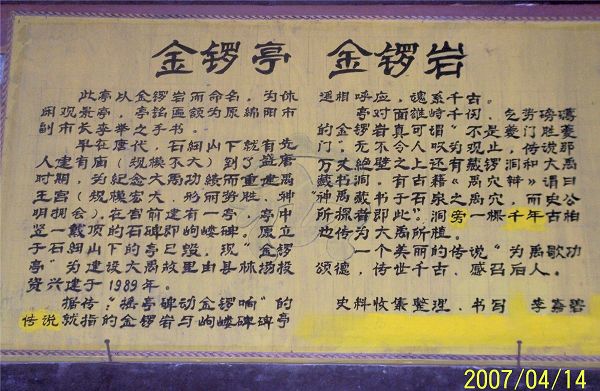 金锣亭 金锣岩
此亭以金锣岩而命名，为休
闲观景亭，亭铭匾额为原绵阳市
副市长李举之手书。
早在唐代，石纽山下就有先
人建有庙（规模不大）到了盛唐
时期，为纪念大禹功绩而重建禹
王宫（规模宏大，形而势胜，神
明拥会）。在宫前建有一亭，亭中
竖一戴顶的石碑即岣嵝碑。原立
于石纽山下的亭已毁，现“金锣
亭”为建设大禹故里由县林场投
资兴建于1989年。
据传：“摇亭碑动金锣响”的
传说就指的金锣岩与岣嵝碑碑亭
遥相呼应，魂系千古。
亭对面雄峙千仞、气势磅礴
的金锣岩真可谓“不是夔门胜夔
门”。无不令人叹为观止，传说那
万丈绝壁之上还有藏锣洞和大禹
藏书洞。有古籍《禹穴辩》谓曰
“神禹藏书于石泉之禹穴，而史公
所探者即此”。洞旁一棵千年古柏
也传为大禹所植。
一个美丽的传说“为禹歌功
颂德，传世千古，感召后人。
史料收集整理、书写 李嘉
2007/04/14